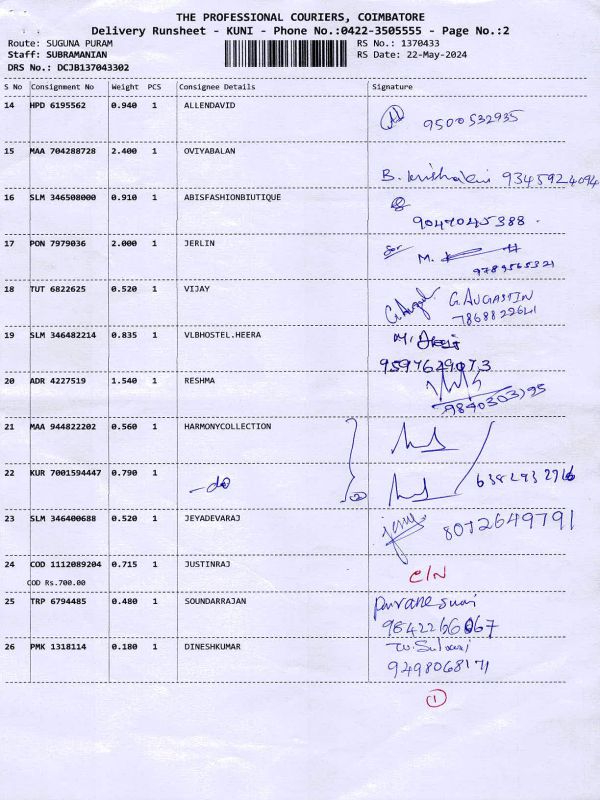 THE PROFESSIONAL COURIERS, COIMBATORE
Delivery Runsheet - KUNI - Phone No.:0422-3505555 - Page No.:2
Route: SUGUNA PURAM RS No.: 1370433
Staff: SUBRAMANIAN RS Date: 22-May-2024
DRS No.: DCJB137043302
S No Consignment No Weight PCS Consignee Details Signature
14 HPD 6195562 0.940 1 ALLENDAVID
9500532935
15 MAA 704288728 2.400 1 OVIYABALAN
B. 9345924094
16 SLM 346508000 0.910 1 ABISFASHIONBIUTIQUE
9047045388.
17 PON 7979036 2.000 1 JERLIN
M.
9789565321
18 TUT 6822625 0.520 1 VIJAY
G. AUGASTIN
7868822641
19 SLM 346482214 0.835 1 VLBHOSTEL.HEERA
9597629073
20 ADR 4227519 1.540 1 RESHMA
9840303295
21 MAA 944822202 0.560 1 HARMONYCOLLECTION
22 KUR 7001594447 0.790 1 -do 2
23 SLM 346400688 0.520 1 JEYADEVARAJ
8012649791
24 COD 1112089204 0.715 1 JUSTINRAJ
COD Rs.700.00
C/N
25 TRP 6794485 0.480 1 SOUNDARRAJAN
9842266067
26 PMK 1318114 0.180 1 DINESHKUMAR
9498068171
1